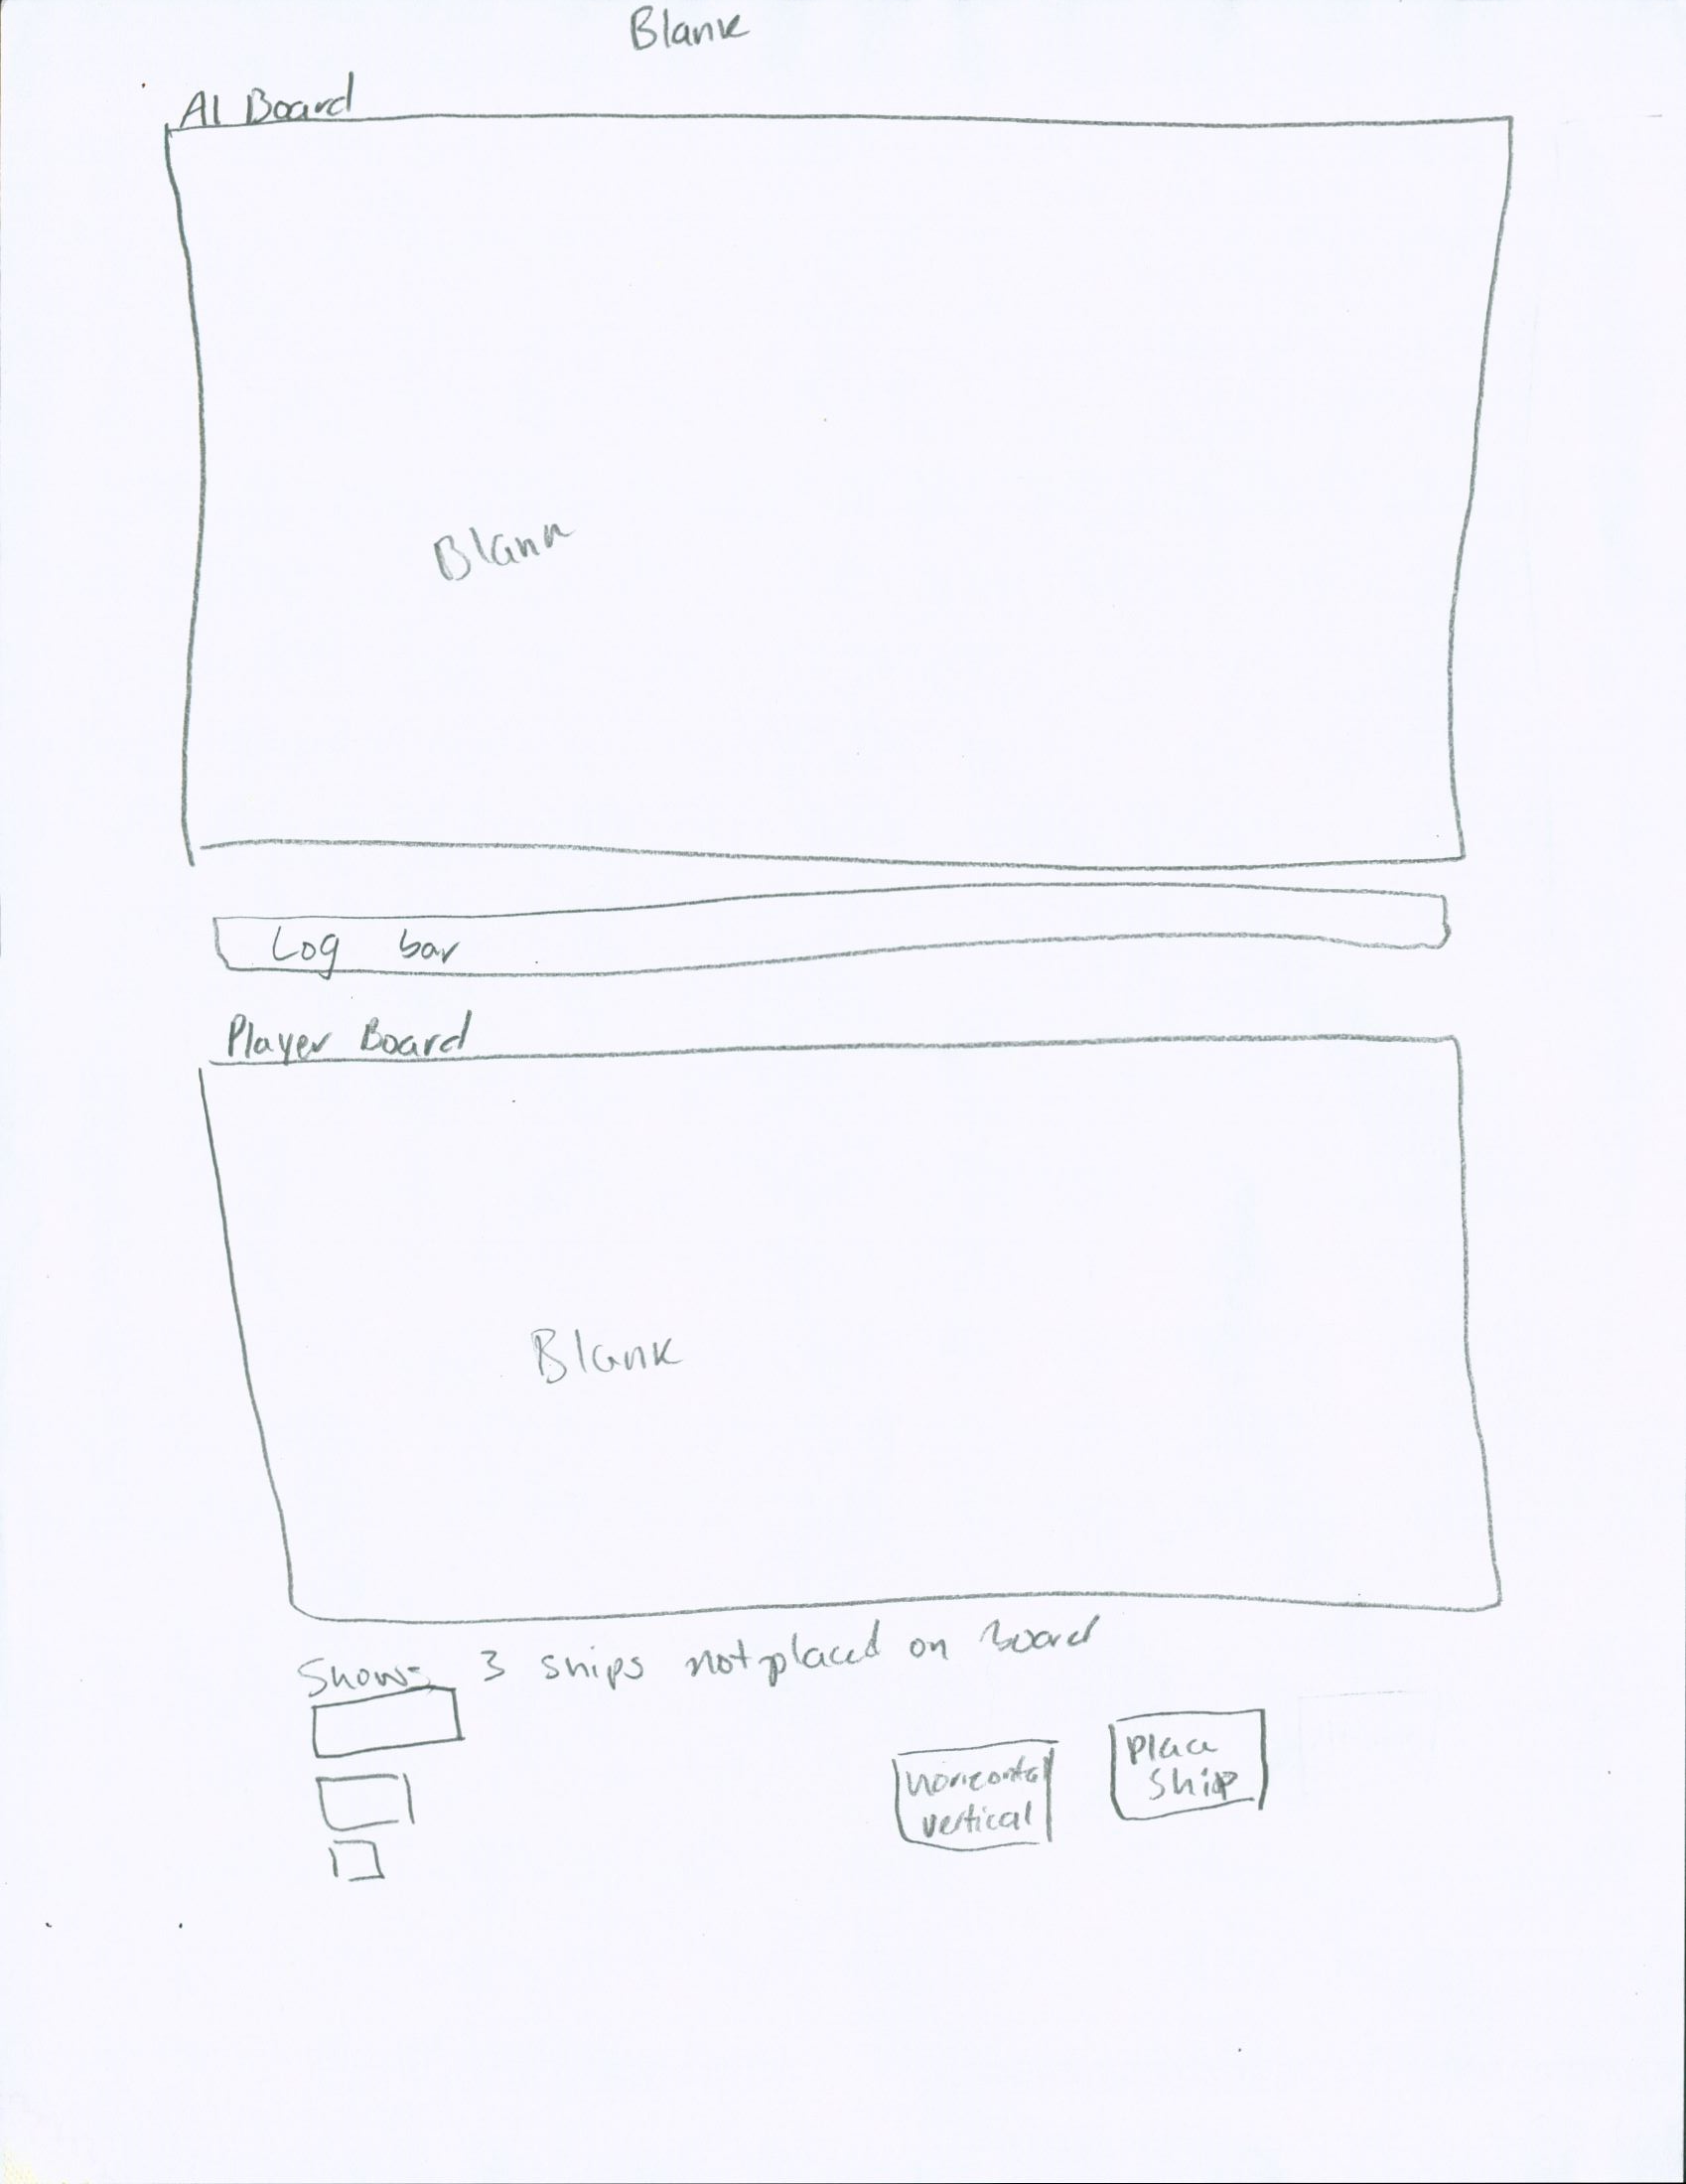 Blank
AI Board
Blank
Log bar
Player Board
Blank
Shows 3 ships not placed on Board
horizontal
vertical
Place
Ship